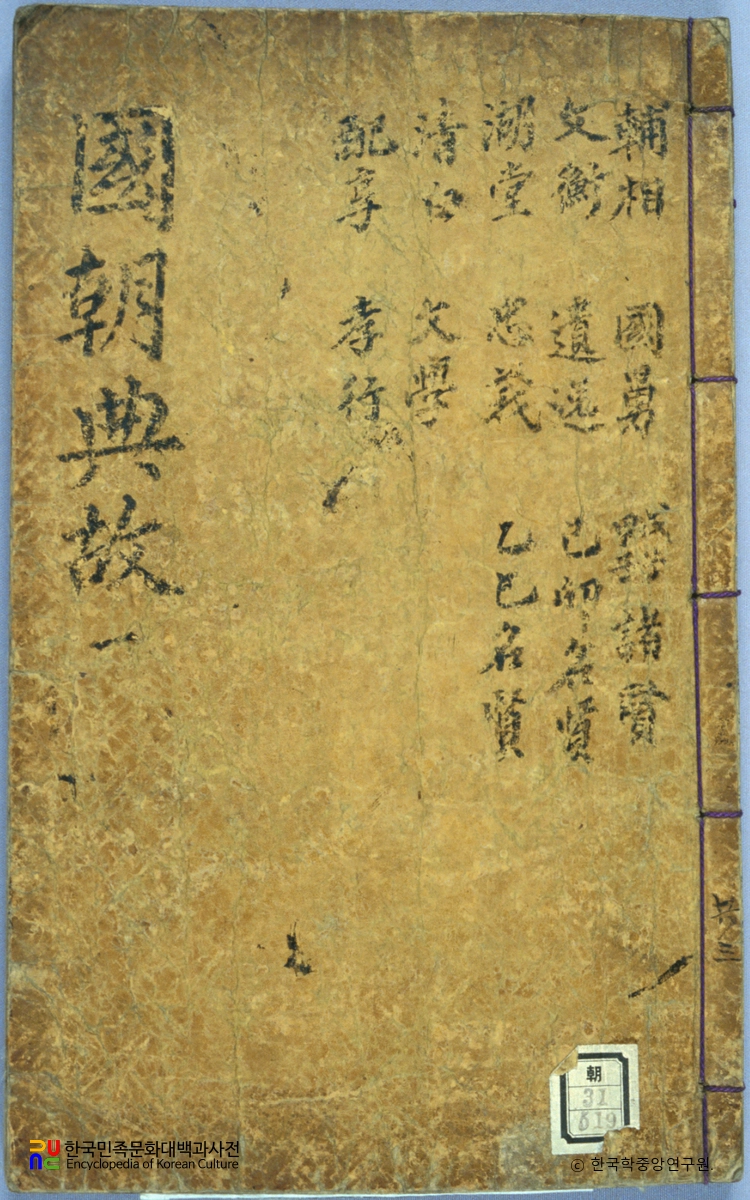 輔相 國舅 諸賢
文衡 遺逸 己卯名賢
湖堂 忠義 乙巳名賢
清白 文學
配享 孝行
國朝典故 一
共三
朝
31
619
한국민족문화대백과사전
Encyclopedia of Korean Culture
© 한국학중앙연구원